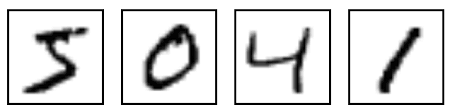 5 0 4 1